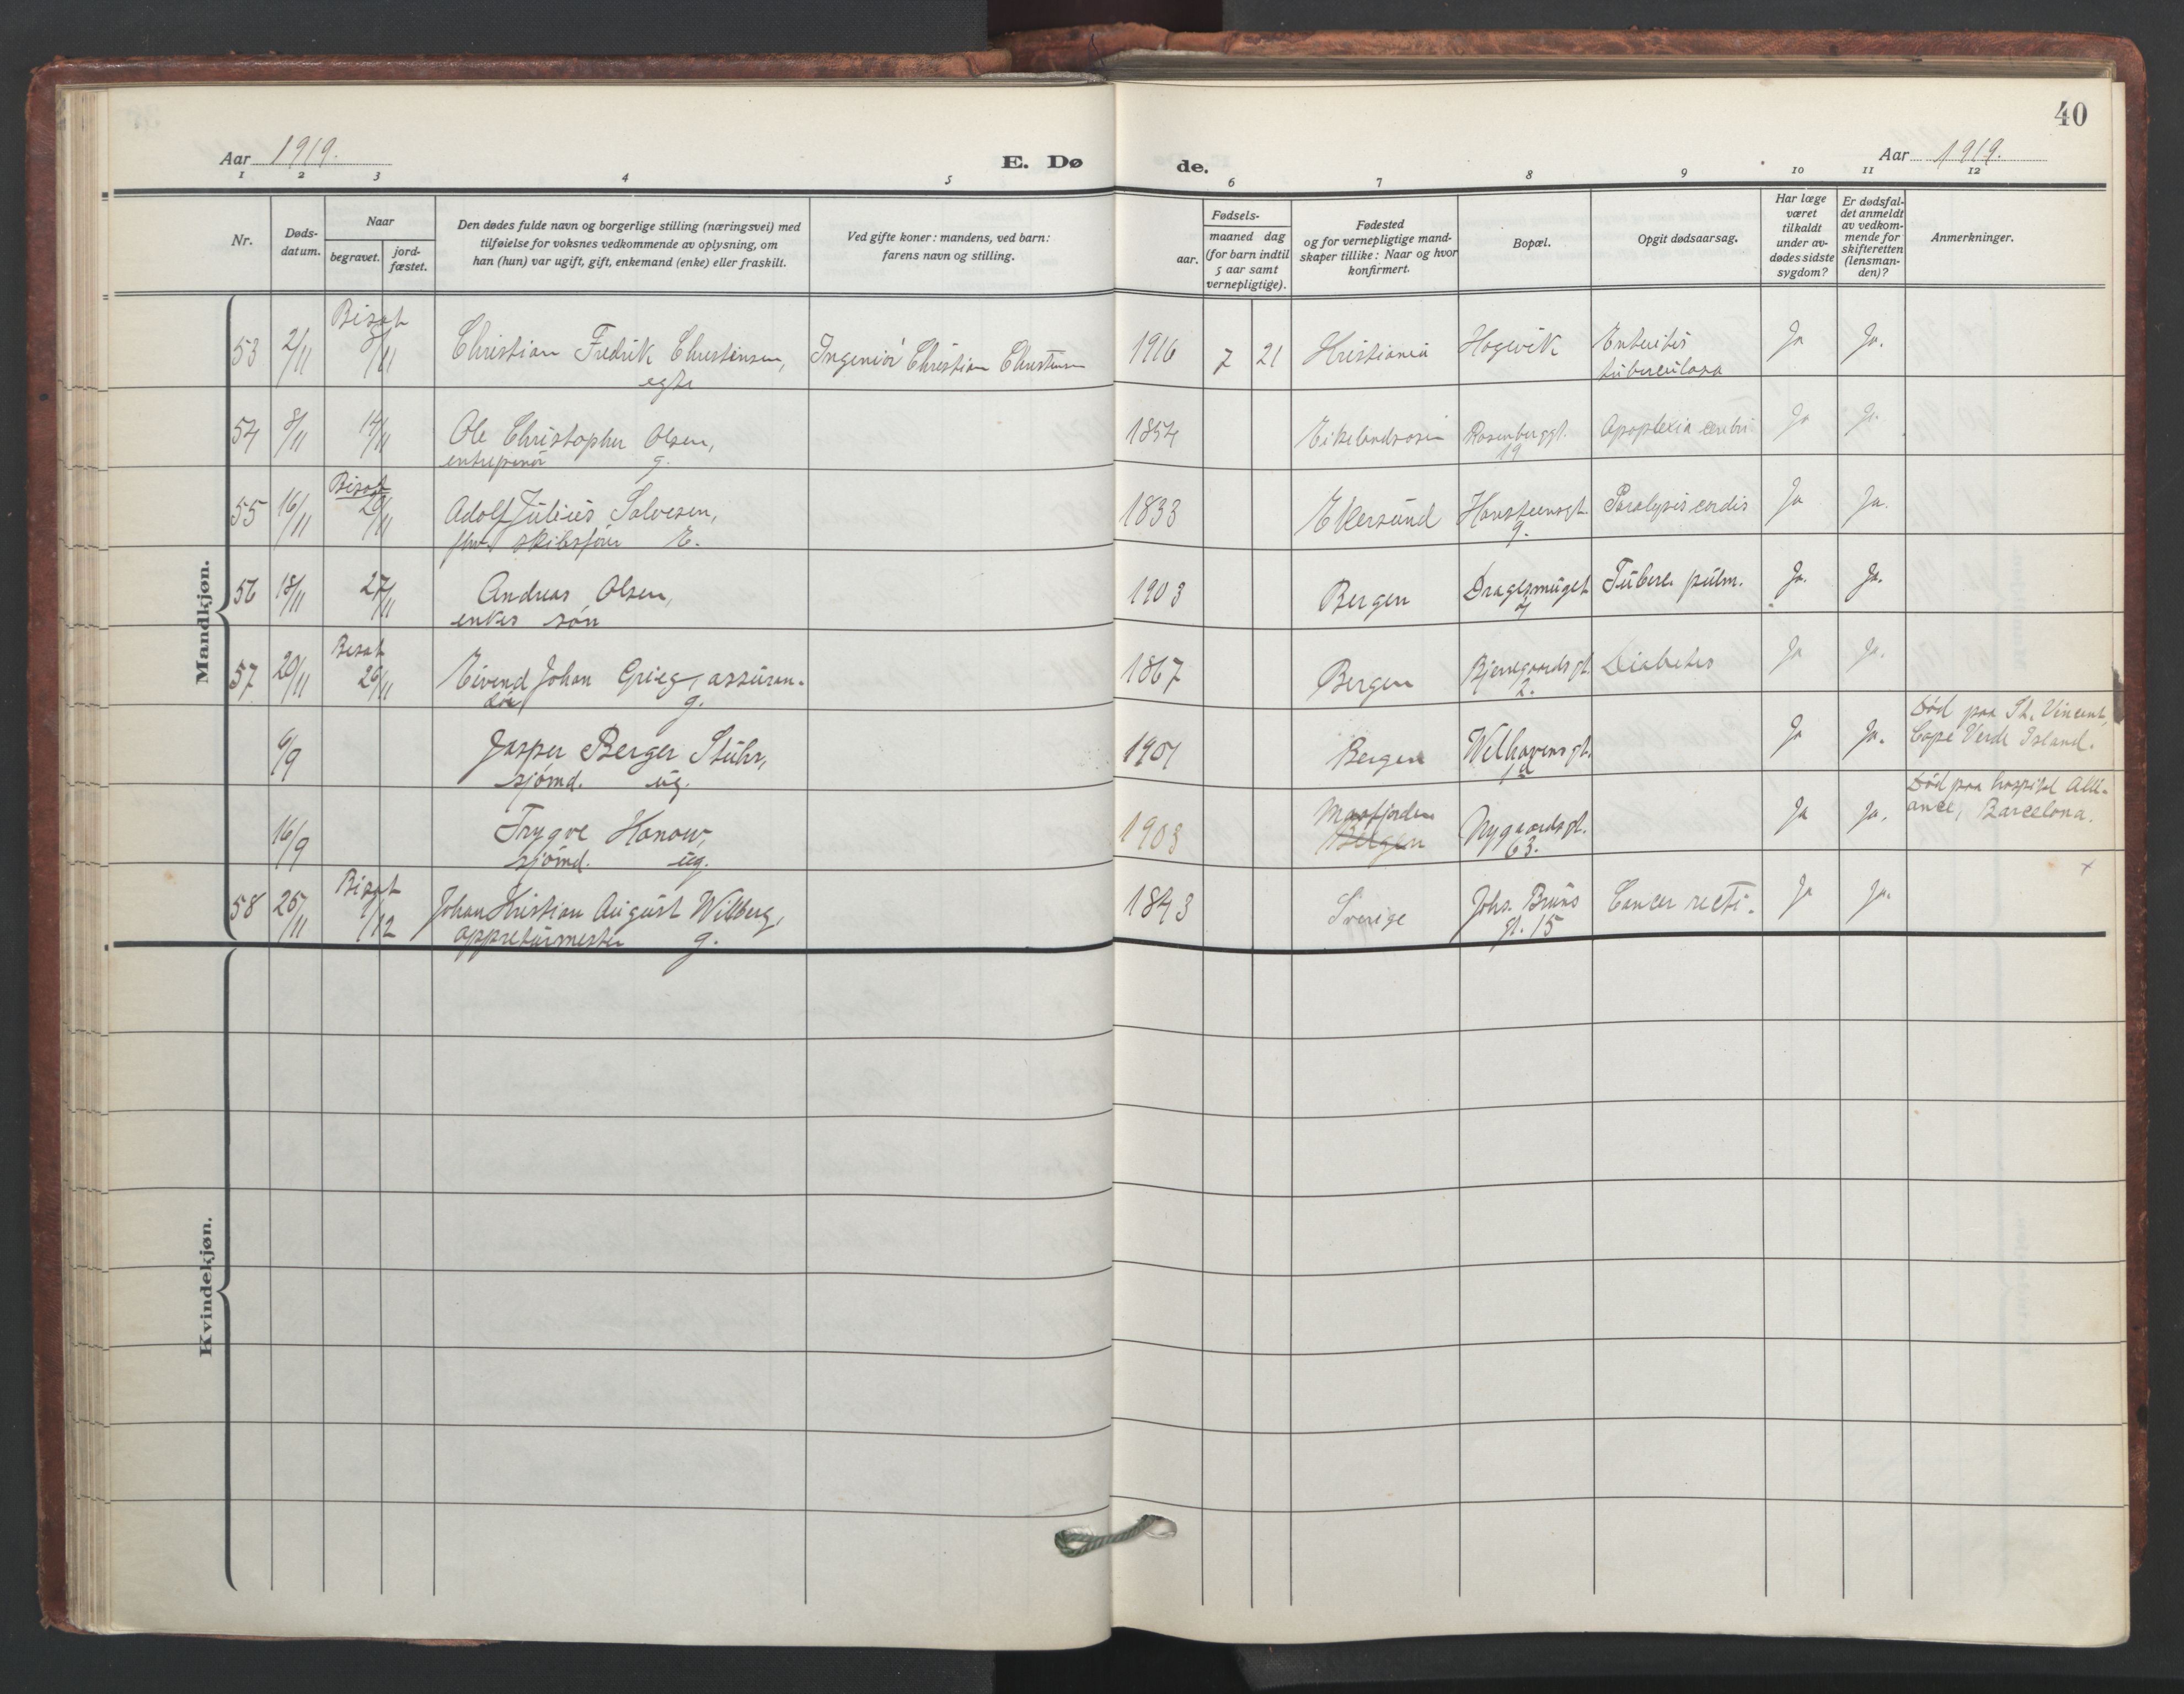 40
Aar 1919. E. Dø de. Aar 1919.
1 2 3 4 5 6 7 8 9 10 11 12
Nr.
Døds-
datum.
Naar
begravet.
jord-
fæstet.
Den dødes fulde navn og borgerlige stilling (næringsvei) med
tilføielse for voksnes vedkommende av oplysning, om
han (hun) var ugift, gift, enkemand (enke) eller fraskilt.
Ved gifte koner: mandens, ved barn:
farens navn og stilling.
Fødsels-
aar.
maaned dag
(for barn indtil
5 aar samt
vernepligtige).
Fødested
og for vernepligtige mand-
skaper tillike: Naar og hvor
konfirmert.
Bopæl.
Opgit dødsaarsag.
Har læge
været
tilkaldt
under av-
dødes sidste
sygdom?
Er dødsfal-
det anmeldt
av vedkom-
mende for
skifteretten
(lensman-
den)?
Anmerkninger.
Mandkjøn.
Bisat
53 2/11 8/11 Christian Fredrik Christensen, Ingeniør Christian Christensen 1916 7 21 Kristiania Hagevik Enteritis Ja Ja.
egte tuberculosa
54 8/11 14/11 Ole Christopher Olsen, 1854 Eikelandsosen Rosenberggt. Apoplexia cerebri Ja Ja.
entreprenør g. 19
Bisat
55 16/11 20/11 Adolf Julius Salvesen, 1833 Ekersund Hansteensgt. Paralysis cordis Ja Ja.
fhv. skibsfører E. 9.
56 18/11 27/11 Andreas Olsen, 1903 Bergen Dragesmuget Tuberc. pulm. Ja. Ja.
enkes søn
Bisat
57 20/11 26/11 Eivend Johan Grieg, assuran- 1867 Bergen Bjerregaardsgt. Diabetes Ja Ja.
dør g. 2.
6/9 Jasper Berger Stuhr, 1901 Bergen Welhavensgt. Ja Ja. Død paa St. Vincent,
sjømd. ug. 1d Cape Verde Island.
16/9 Trygve Hanow, 1903 Maafjorden Nygaardsgt. Ja Ja. Død paa hospital Alli-
sjømd. ug. Bergen 63. ance, Barcelona.
Bisat
58 25/11 1/12 Johan Kristian August Wilberg, 1843 Sverige Johs. Bruns Cancer recti. Ja Ja. +
appreturmester g. gt. 15
Kvindekjøn.